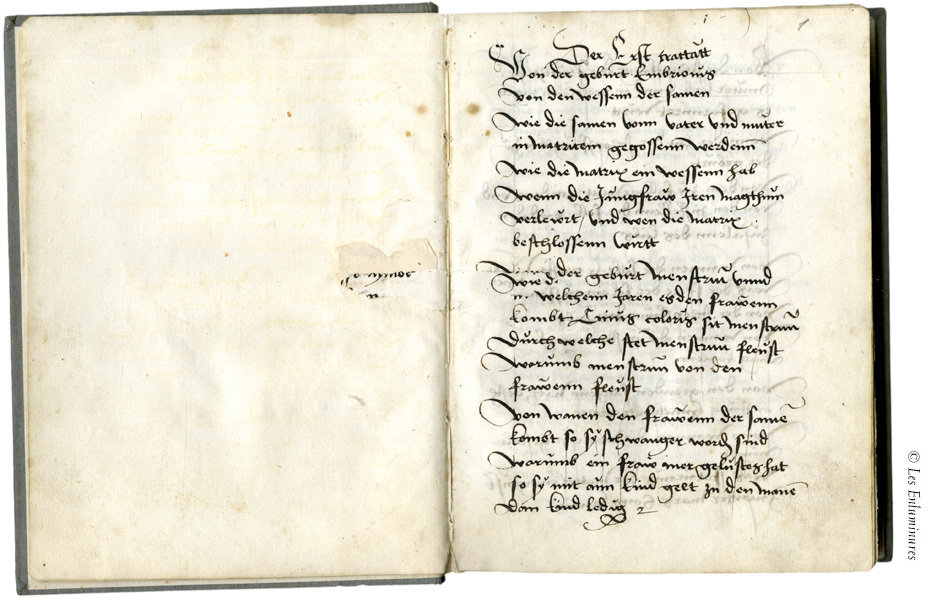 1
Der Erst tracttatt
Von der gebúrt Embrionis
von den wessenn der samen
wie die samen vonn vater vnd muter
in matricem gegossenn werdenn
wie die matrix ein wessenn hab
wenn die Júngfraw Iren magthún
verleúrt / vnd wen die matrix
beschlossenn wirtt
wie der gebúrt menstruú vnnd
welchenn Jaren es den frawenn
kombt Cuius coloris sit menstruú
dúrch welche stet menstruú fleúst
warúmb menstruú von den
frawenn fleúst
von wanen den frawenn der samē
kombt so sy schwanger word sind
warúmb ein fraw mer gelústes hat
so sy mit aim kind geet zu den manē
dan kind ledig
© Les Enluminures